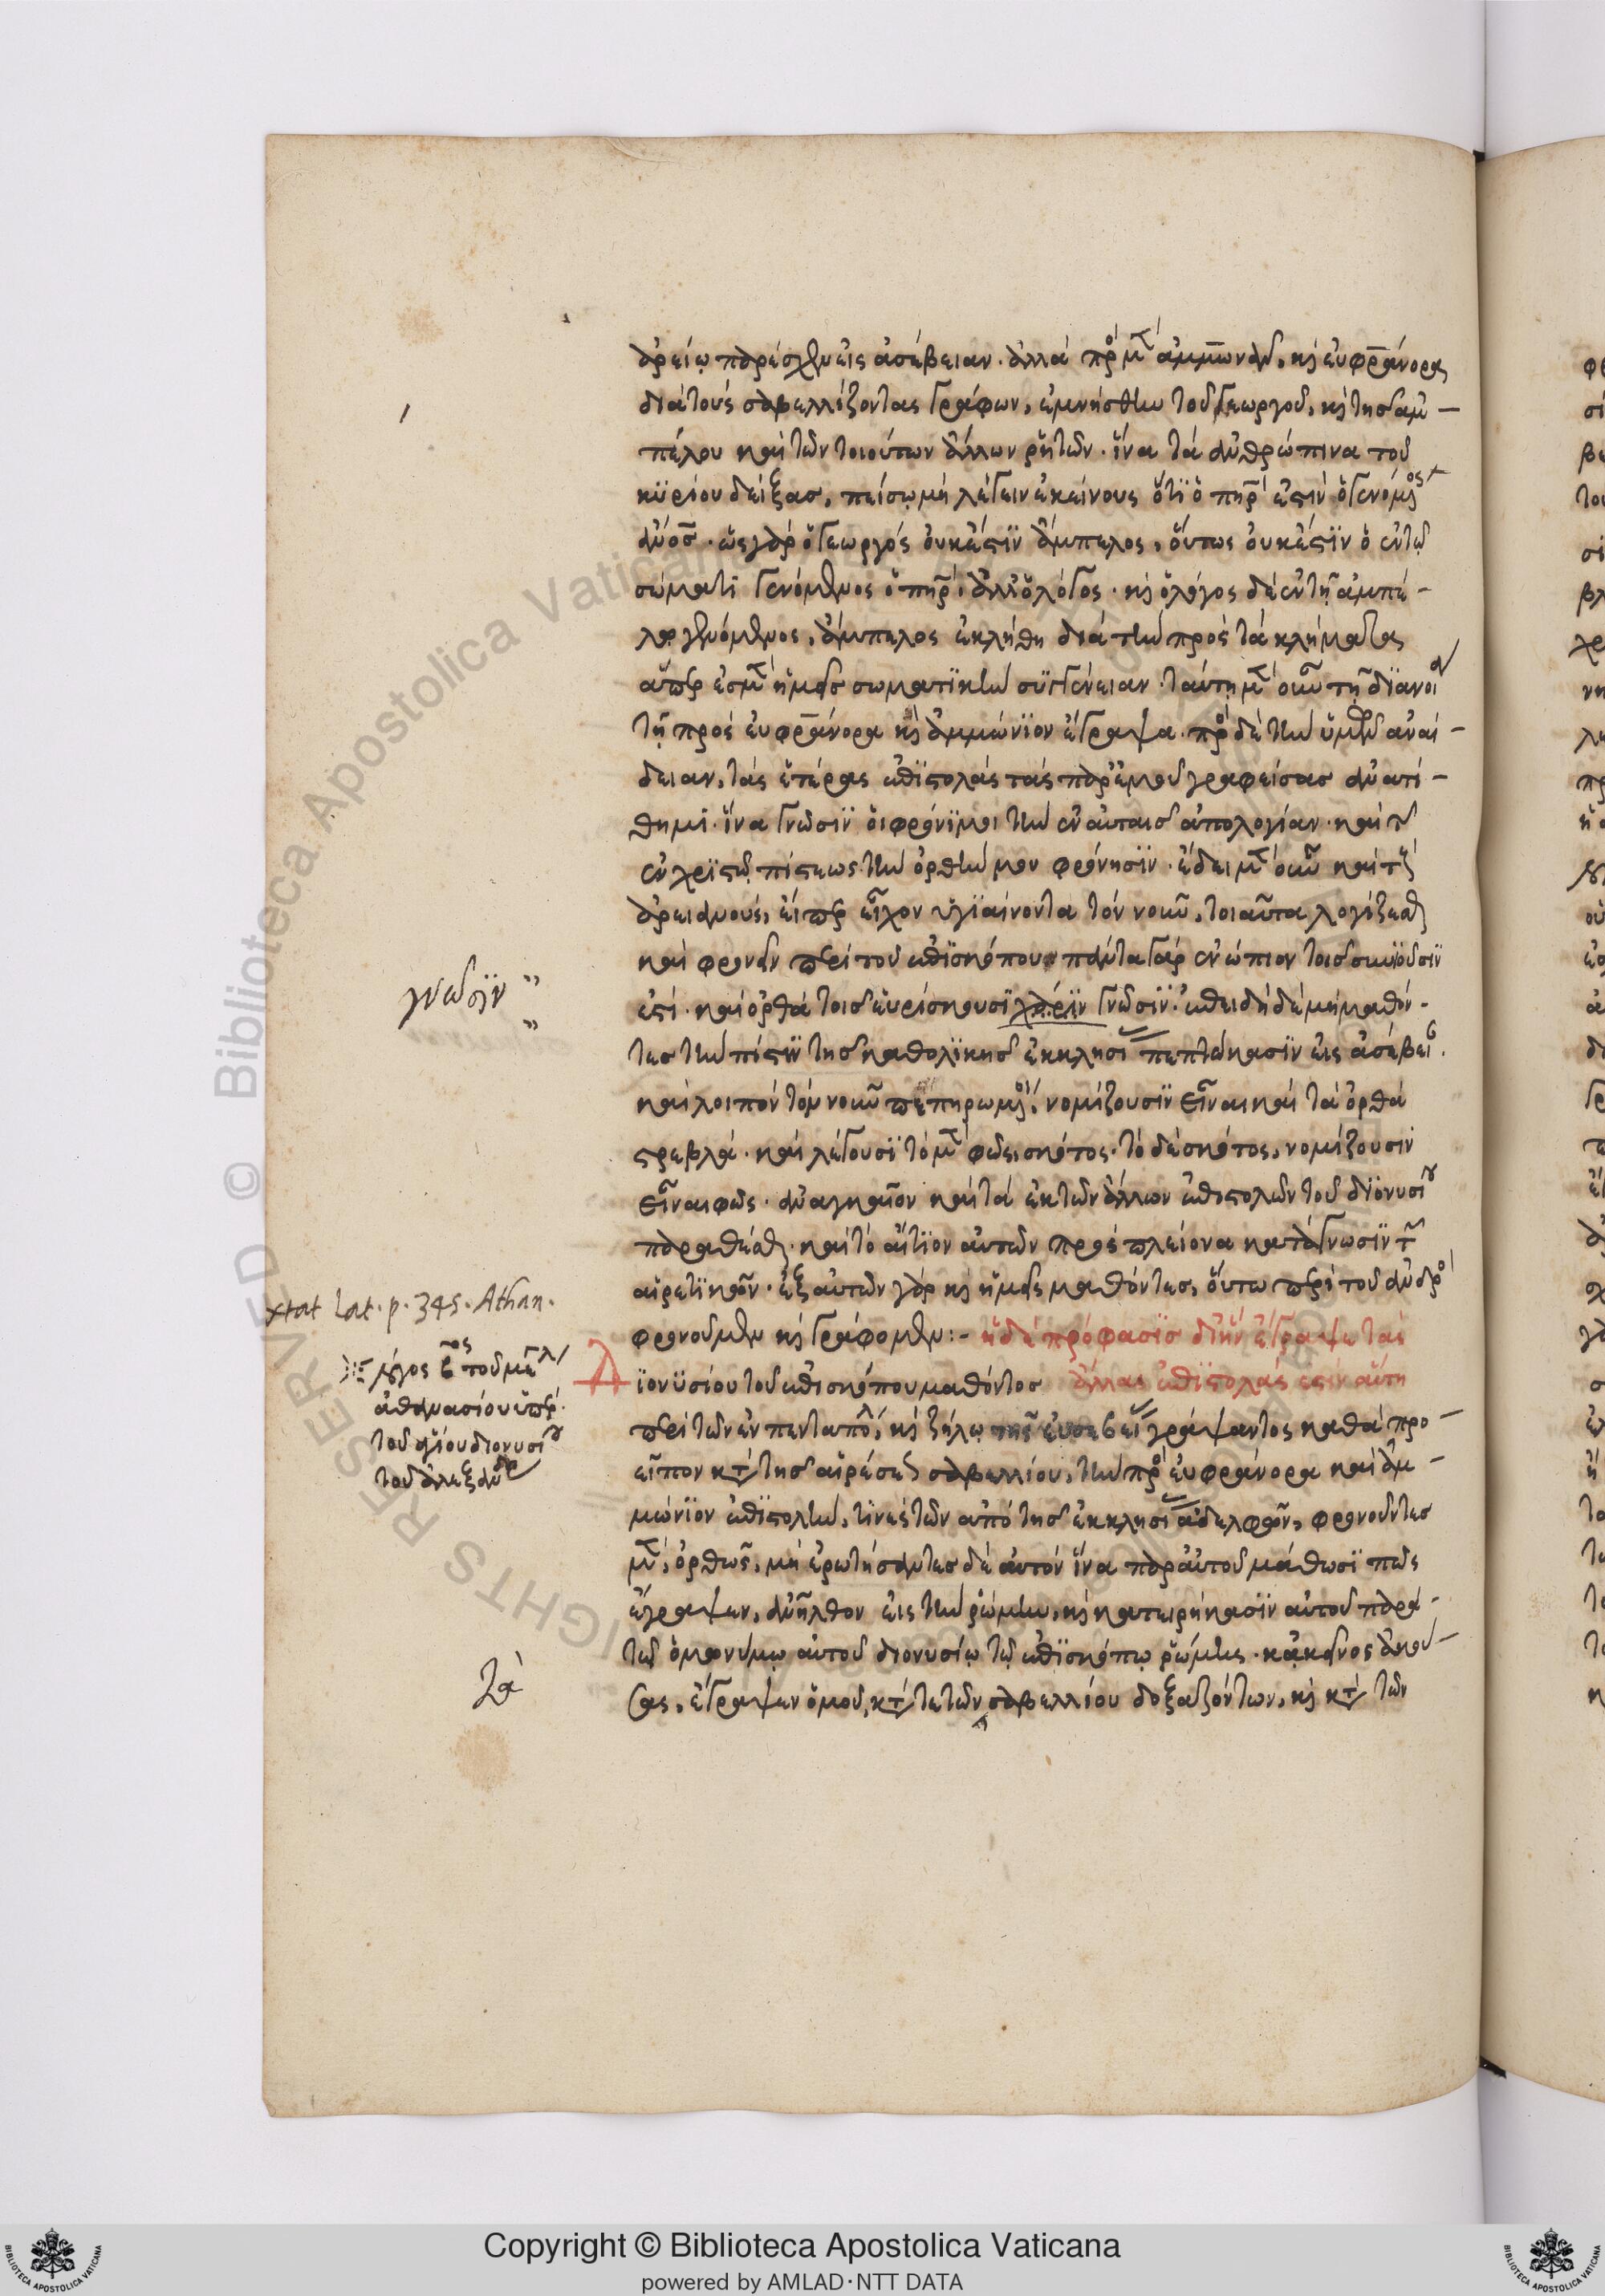 ἀρείῳ παρέσχεν εἰς ἀσέβειαν. ἀλλὰ πρὸς μὲν ἀμμωνᾶν, καὶ εὐφράνορα
διὰ τοὺς σαβελλίζοντας γράφων, ἐμνήσθην τοῦ γεωργοῦ, καὶ τῆς ἀμ–
πέλου καὶ τῶν τοιούτων ἄλλων ῥητῶν. ἵνα τὰ ἀνθρώπινα τοῦ
κυρίου δείξας, πείσω μὴ λέγειν ἐκείνους ὅτι ὁ πατήρ ἐστιν ὁ γενόμενος
ἄνος. ὡς γὰρ ὁ γεωργὸς οὐκ ἔστιν ἄμπελος, οὕτως οὐκ ἔστιν ὁ ἐν τῷ
σώματι γενόμενος ὁ πατήρ· ἀλλ' ὁ λόγος. καὶ ὁ λόγος δὲ ἐν τῇ ἀμπέ–
λῳ γενόμενος, ἄμπελος ἐκλήθη διὰ τὴν πρὸς τὰ κλήματα
ἅπερ ἐσμὲν ἡμεῖς σωματικὴν συγγένειαν. ταύτῃ μὲν οὖν τῇ διανοίᾳ
τῇ πρὸς εὐφράνορα καὶ ἀμμώνιον ἔγραψα. πρὸς δὲ τὴν ὑμῶν ἀναί–
δειαν, τὰς ἑτέρας ἐπιστολὰς τὰς παρ' ἐμοῦ γραφείσας ἀνατί–
θημι. ἵνα γνῶσιν οἱ φρόνιμοι τὴν ἐν αὐταῖς ἀπολογίαν. καὶ τῆς
ἐν χριστῷ πίστεως τὴν ὀρθήν μου φρόνησιν. ἔδει μὲν οὖν καὶ τοὺς
ἀρειανούς, εἴπερ εἶχον ὑγιαίνοντα τὸν νοῦν, τοιαῦτα λογίζεσθαι
καὶ φρονεῖν περὶ τοῦ ἐπισκόπου πάντα γὰρ ἐνώπιον τοῖς συνιοῦσιν
ἐστί. καὶ ὀρθὰ τοῖς εὑρίσκουσι χάριν γνῶσιν. ἐπειδὴ δὲ μὴ μαθόν–
τες τὴν πίστιν τῆς καθολικῆς ἐκκλησίας πεπτώκασιν εἰς ἀσέβειαν.
καὶ λοιπὸν τὸν νοῦν πεπηρωμένοι, νομίζουσιν εἶναι καὶ τὰ ὀρθὰ
στρεβλά. καὶ λέγουσι τὸ μὲν φῶς, σκότος. τὸ δὲ σκότος, νομίζουσιν
εἶναι φῶς. ἀναγκαῖον καὶ τὰ ἐκ τῶν ἄλλων ἐπιστολῶν τοῦ διονυσίου
παραθέσθαι. καὶ τὸ αἴτιον αὐτῶν πρὸς πλείονα κατάγνωσιν τῶν
αἱρετικῶν. ἐξ αὐτῶν γὰρ καὶ ἡμεῖς μαθόντες, οὕτω περὶ τοῦ ἀνδρὸς
φρονοῦμεν καὶ γράφομεν:– ἡ δὲ πρόφασις δι' ἣν ἔγραψε τὰς
Διονυσίου τοῦ ἐπισκόπου μαθόντος ἄλλας ἐπιστολάς ἐστιν αὕτη
περὶ τῶν ἐν πενταπόλει, καὶ ζήλῳ τῆς εὐσεβείας γράψαντος καθὰ προ–
εῖπον κατὰ τῆς αἱρέσεως σαβελλίου, τὴν πρὸς εὐφράνορα καὶ ἀμ–
μώνιον ἐπιστολήν, τινὲς τῶν ἀπὸ τῆς ἐκκλησίας ἀδελφῶν, φρονοῦντες
μὲν, ὀρθῶς, μὴ ἐρωτήσαντες δὲ αὐτὸν ἵνα παρ' αὐτοῦ μάθωσι πῶς
ἔγραψεν, ἀνῆλθον εἰς τὴν ῥώμην, καὶ κατειρήκασιν αὐτοῦ παρὰ
τῷ ὁμωνύμῳ αὐτοῦ διονυσίῳ τῷ ἐπισκόπῳ ῥώμης. κἀκεῖνος ἀκού–
σας, ἔγραψεν ὁμοῦ, κατά τε τῶν σαβελλίου δοξαζόντων, καὶ κατὰ τῶν
γνῶσιν
xtat lat. p. 345. Athan.
λόγος τοῦ μεγάλου
ἀθανασίου ὑπὲρ
τοῦ ἁγίου διονυσίου
τοῦ ἀλεξανδρ
© Biblioteca Apostolica Vaticana
RIGHTS RESERVED
Copyright © Biblioteca Apostolica Vaticana
powered by AMLAD·NTT DATA
BIBLIOTECA APOSTOLICA VATICANA
BIBLIOTECA APOSTOLICA VATICANA